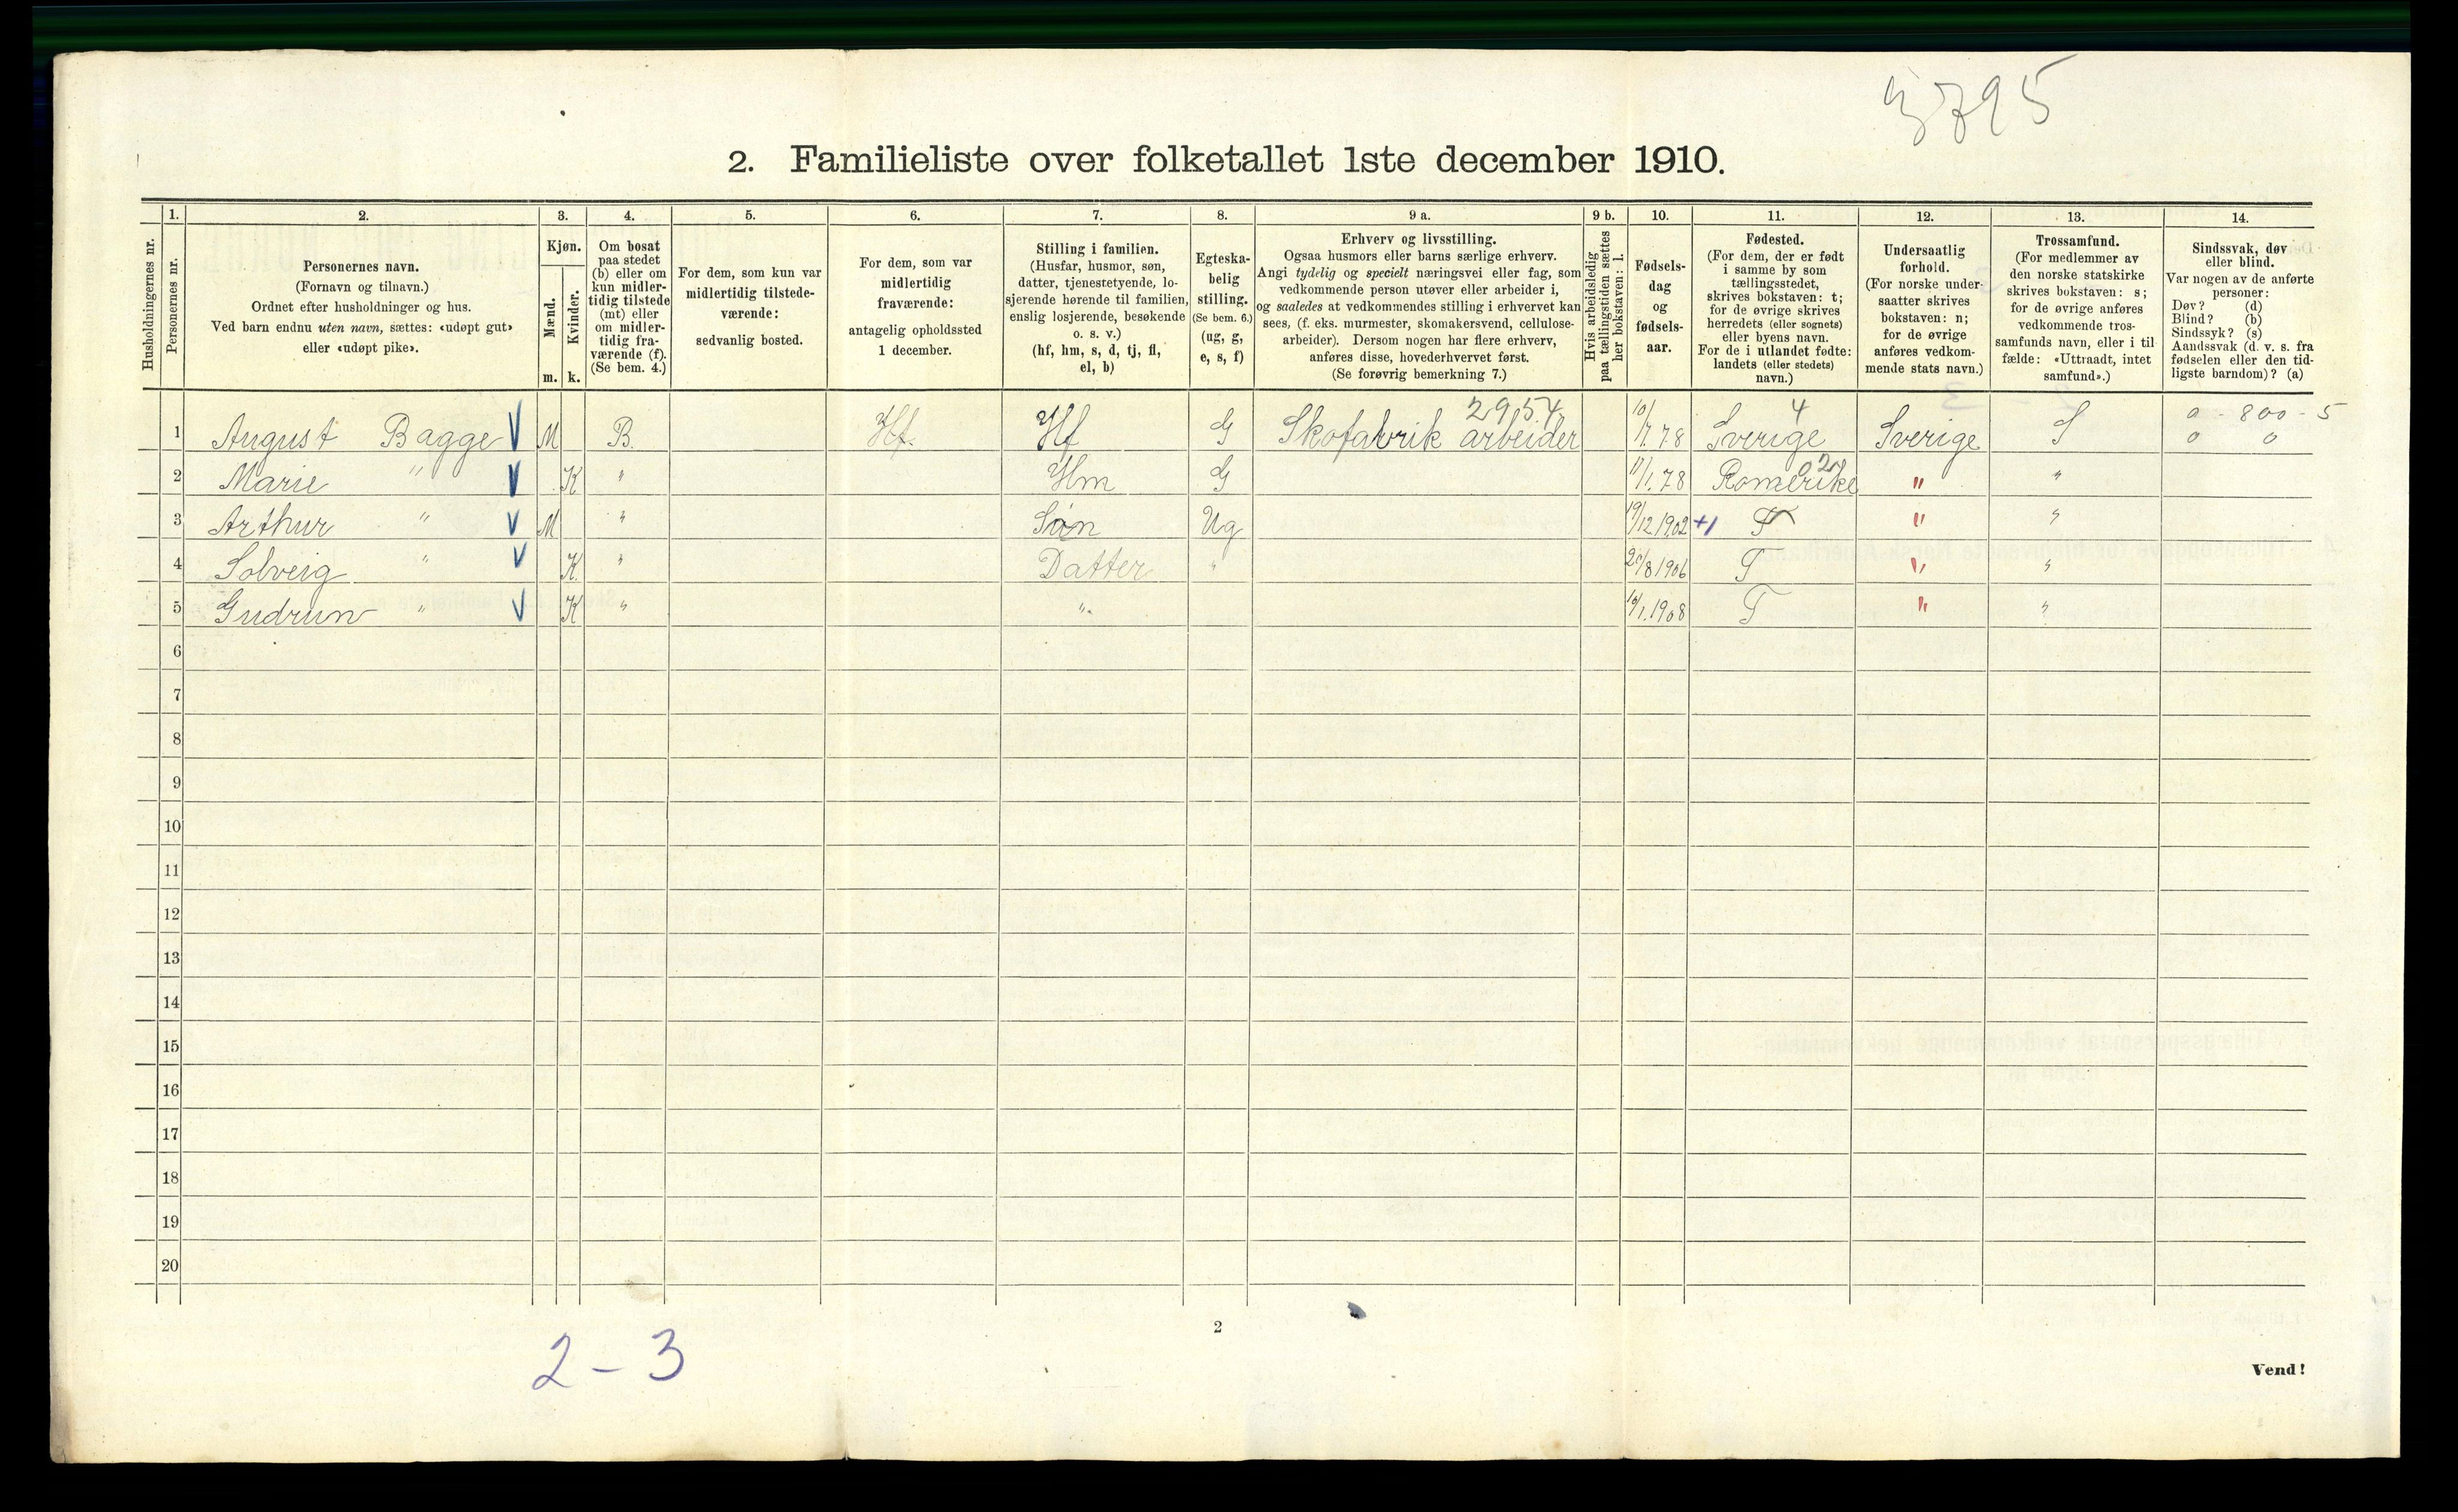 5795
2. Familieliste over folketallet 1ste december 1910.
Husholdningernes nr.
1. Personernes nr.
2. Personernes navn. (Fornavn og tilnavn.) Ordnet efter husholdninger og hus. Ved barn endnu uten navn, sættes: «udøpt gut» eller «udøpt pike».
3. Kjøn. Mænd. m. Kvinder. k.
4. Om bosat paa stedet (b) eller om kun midlertidig tilstede (mt) eller om midlertidig fraværende (f). (Se bem. 4.)
5. For dem, som kun var midlertidig tilstedeværende: sedvanlig bosted.
6. For dem, som var midlertidig fraværende: antagelig opholdssted 1 december.
7. Stilling i familien. (Husfar, husmor, søn, datter, tjenestetyende, losjerende hørende til familien, enslig losjerende, besøkende o. s. v.) (hf, hm, s, d, tj, fl, el, b)
8. Egteskabelig stilling. (Se bem. 6.) (ug, g, e, s, f)
9 a. Erhverv og livsstilling. Ogsaa husmors eller barns særlige erhverv. Angi tydelig og specielt næringsvei eller fag, som vedkommende person utøver eller arbeider i, og saaledes at vedkommendes stilling i erhvervet kan sees, (f. eks. murmester, skomakersvend, cellulosearbeider). Dersom nogen har flere erhverv, anføres disse, hovederhvervet først. (Se forøvrig bemerkning 7.)
9 b. Hvis arbeidsledig paa tællingstiden sættes her bokstaven: l.
10. Fødselsdag og fødselsaar.
11. Fødested. (For dem, der er født i samme by som tællingsstedet, skrives bokstaven: t; for de øvrige skrives herredets (eller sognets) eller byens navn. For de i utlandet fødte: landets (eller stedets) navn.)
12. Undersaatlig forhold. (For norske undersaatter skrives bokstaven: n; for de øvrige anføres vedkommende stats navn.)
13. Trossamfund. (For medlemmer av den norske statskirke skrives bokstaven: s; for de øvrige anføres vedkommende trossamfunds navn, eller i tilfælde: «Uttraadt, intet samfund».)
14. Sindssvak, døv eller blind. Var nogen av de anførte personer: Døv? (d) Blind? (b) Sindssyk? (s) Aandssvak (d. v. s. fra fødselen eller den tidligste barndom)? (a)
2954 4 0 - 800 - 5
1 August Bagge V M B. Hf. Hf G Skofabrik arbeider 10/7.78 Sverige Sverige S 0 0
02
2 Marie " V K " Hm G 11/1.78 Romerike " "
3 Arthur " V M " Søn Ug 19/12 1902 +1 T " "
4 Solveig " V K. " Datter " 20/8 1906 T " "
5 Gudrun " V K " " 10/1.1908 T " "
6
7
8
9
10
11
12
13
14
15
16
17
18
19
20
2
2 - 3
Vend!